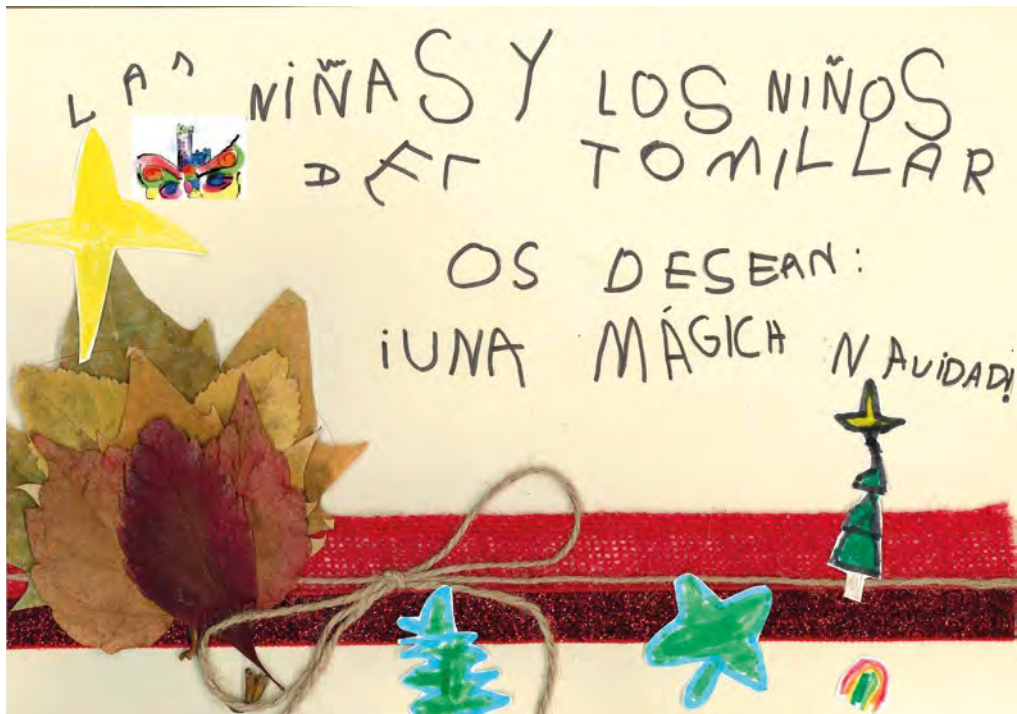 LAS NIÑAS Y LOS NIÑOS
DEL TOMILLAR
OS DESEAN:
¡UNA MÁGICA NAVIDAD!